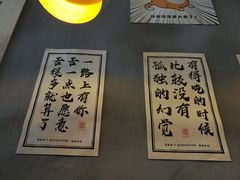 一路上有你
苦一点也愿意
苦很多就算了
有得吃的时候
比较没有
孤独的幻觉